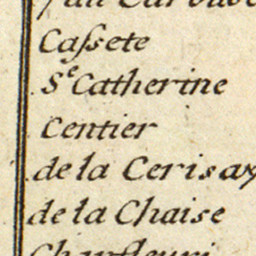 Caſsete
S.^e Catherine
Centier
de la Cerisay
de la Chaise